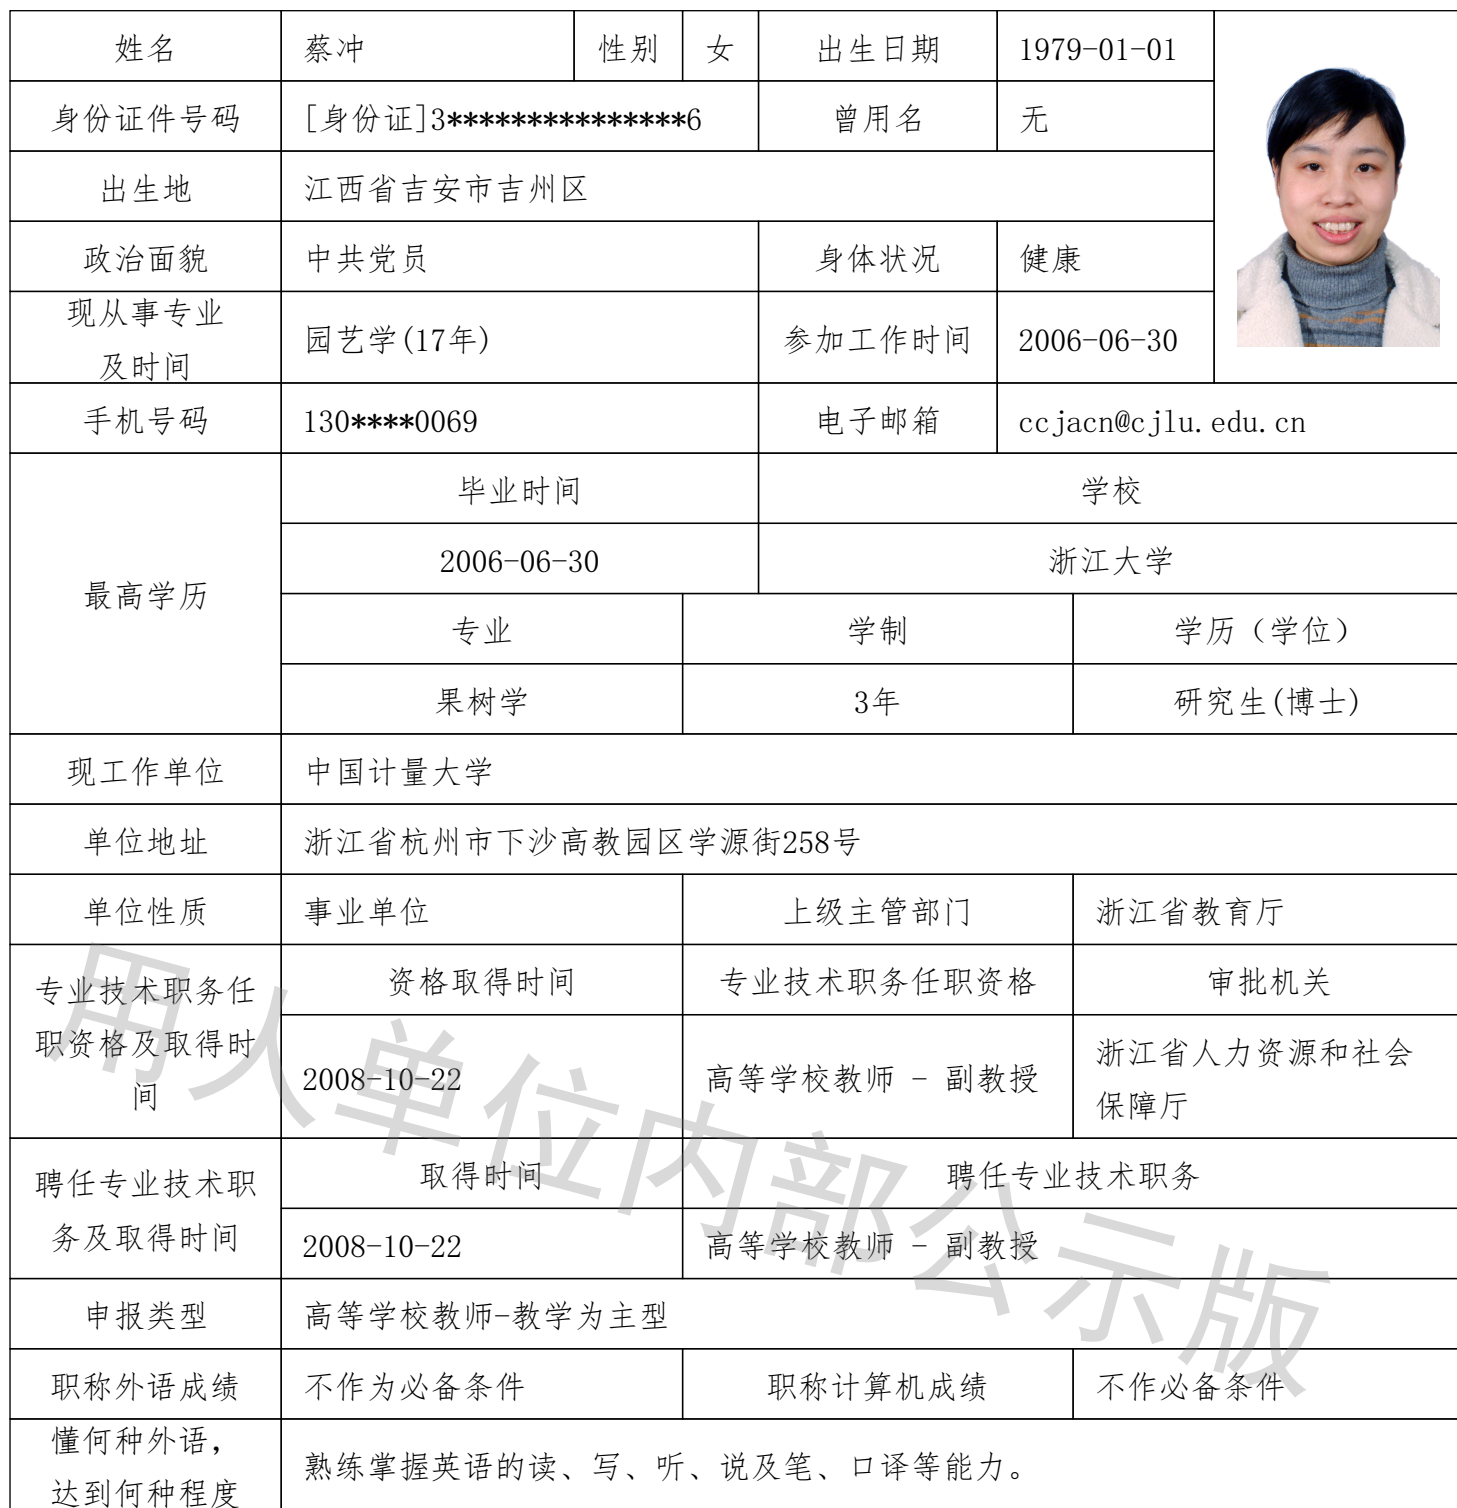 姓名 蔡冲 性别 女 出生日期 1979-01-01
身份证件号码 [身份证]3***************6 曾用名 无
出生地 江西省吉安市吉州区
政治面貌 中共党员 身体状况 健康
现从事专业
及时间
园艺学(17年) 参加工作时间 2006-06-30
手机号码 130****0069 电子邮箱 ccjacn@cjlu.edu.cn
最高学历
毕业时间 学校
2006-06-30 浙江大学
专业 学制 学历（学位）
果树学 3年 研究生(博士)
现工作单位 中国计量大学
单位地址 浙江省杭州市下沙高教园区学源街258号
单位性质 事业单位 上级主管部门 浙江省教育厅
专业技术职务任
职资格及取得时
间
资格取得时间 专业技术职务任职资格 审批机关
2008-10-22 高等学校教师 - 副教授 浙江省人力资源和社会
保障厅
聘任专业技术职
务及取得时间
取得时间 聘任专业技术职务
2008-10-22 高等学校教师 - 副教授
申报类型 高等学校教师-教学为主型
职称外语成绩 不作为必备条件 职称计算机成绩 不作必备条件
懂何种外语，
达到何种程度
熟练掌握英语的读、写、听、说及笔、口译等能力。
用人单位内部公示版